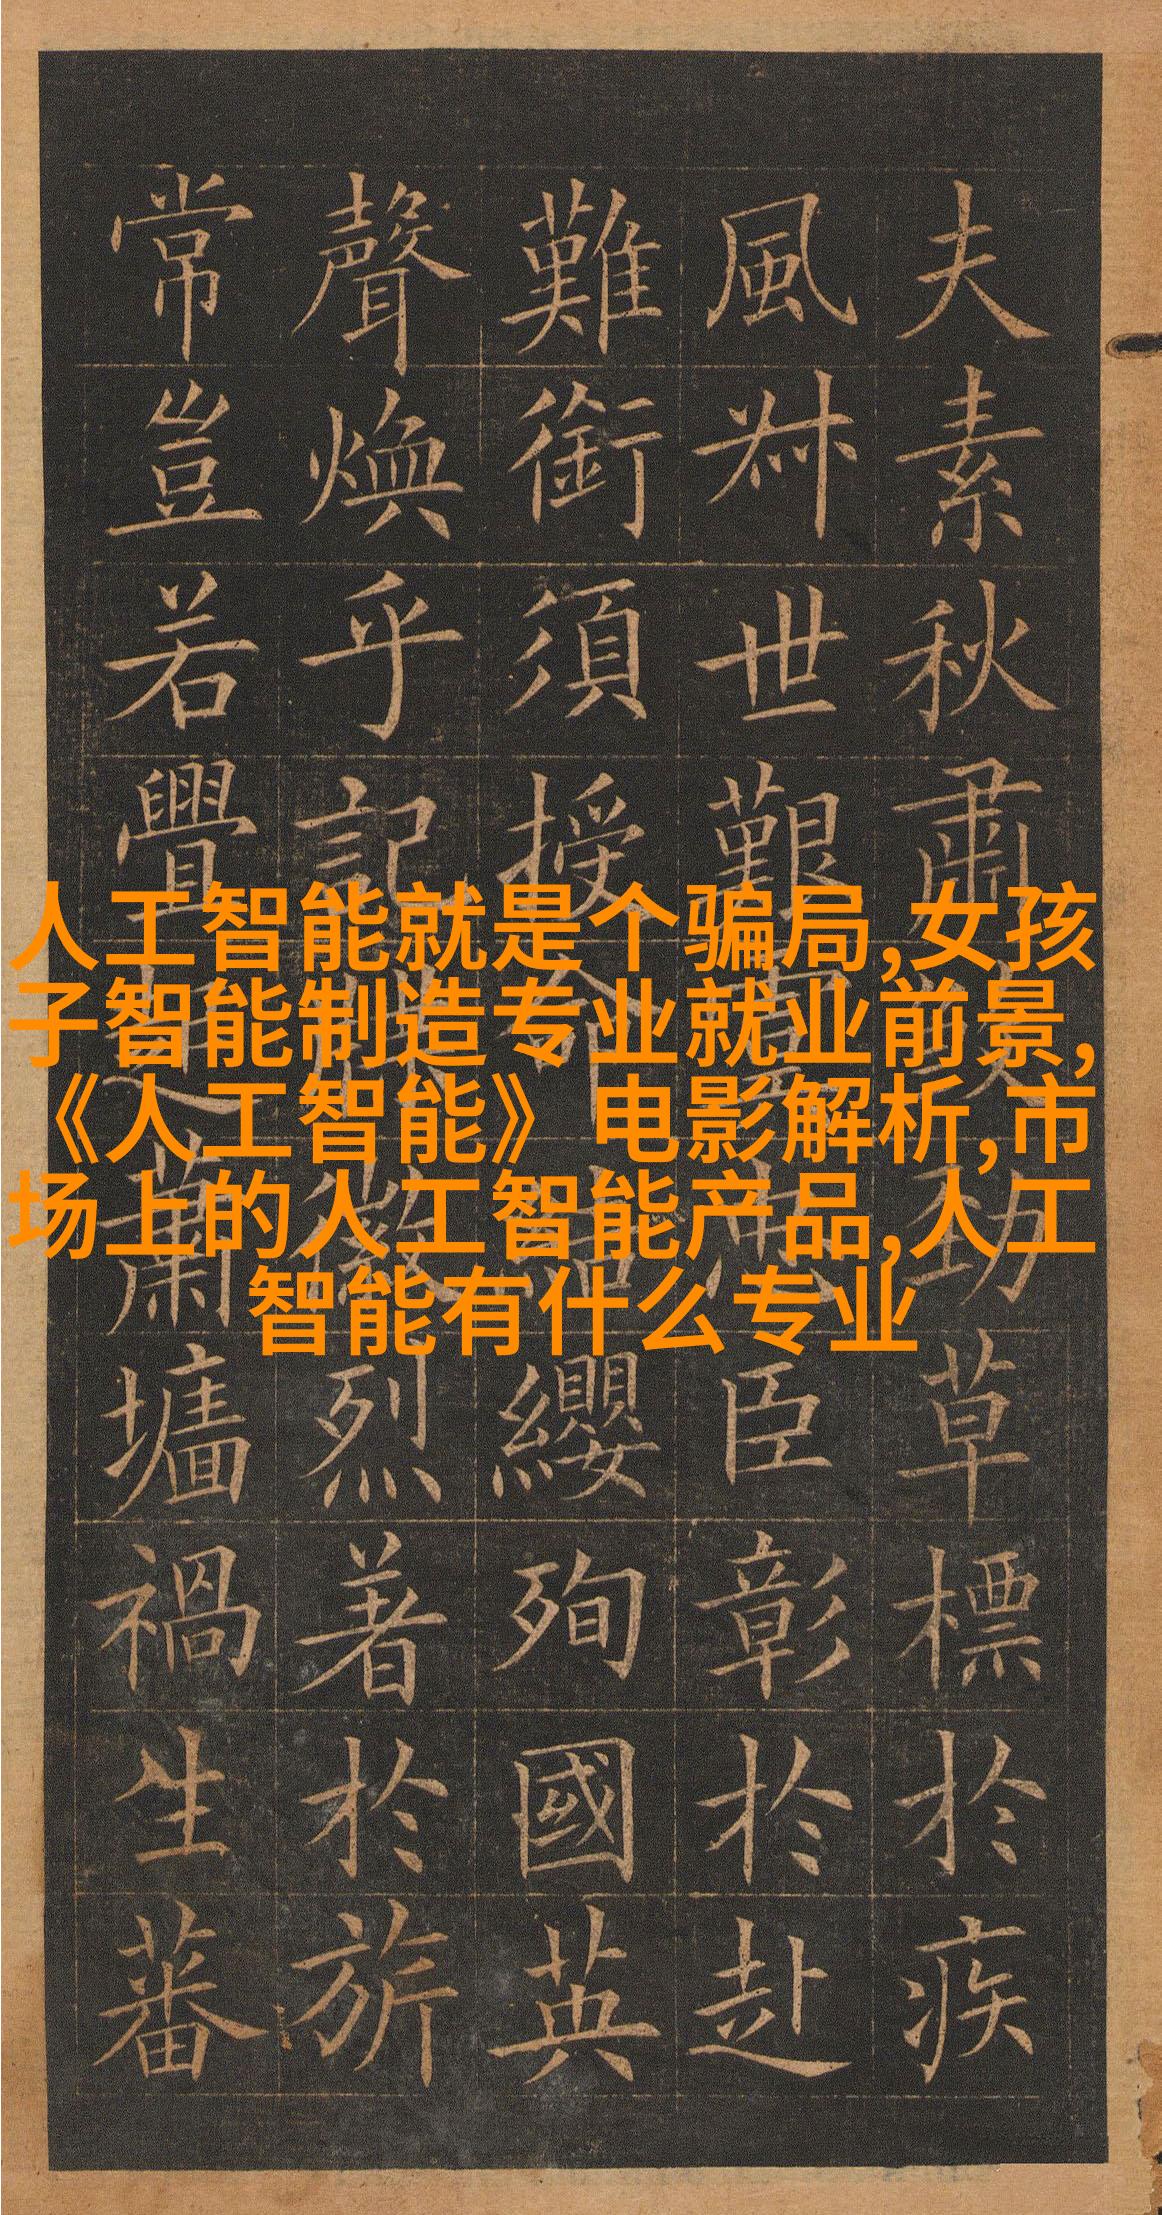 夫素秋肅勁草標於疾
風叔世艱臣彰於赴
難銜須授命纓殉國英
聲煥乎記徽烈著於旂
常豈若釁起蕭墻禍生蕃
人工智能就是个骗局,女孩
子智能制造专业就业前景,
《人工智能》电影解析,市
场上的人工智能产品,人工
智能有什么专业